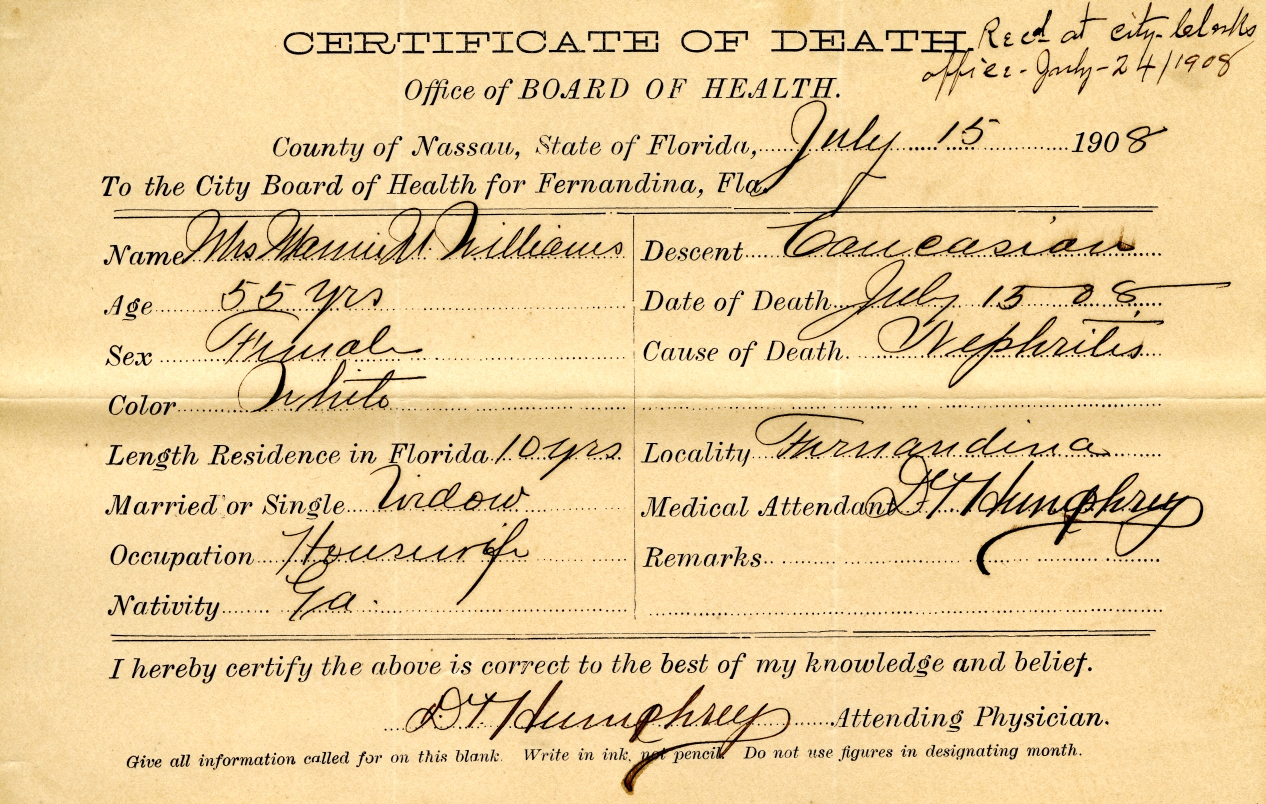 CERTIFICATE OF DEATH
Recd at city-Clerks
office-July-24/1908
Office of BOARD OF HEALTH.
County of Nassau, State of Florida, July 15 1908
To the City Board of Health for Fernandina, Fla.
Name Mrs Williams
Descent Caucasian
Age 55 yrs
Date of Death July 15 08
Sex Female
Cause of Death Nephritis
Color White
Length Residence in Florida 10 yrs
Locality Fernandina
Married or Single Widow
Medical Attendant D T Humphrey
Occupation Housewife
Remarks
Nativity Ga.
I hereby certify the above is correct to the best of my knowledge and belief.
D T Humphrey Attending Physician.
Give all information called for on this blank. Write in ink, not pencil. Do not use figures in designating month.